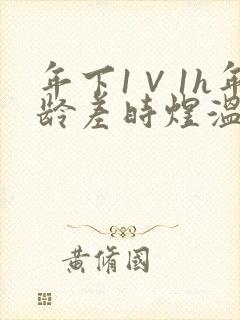 年下1V1h年
龄差时煌温
黄脩國